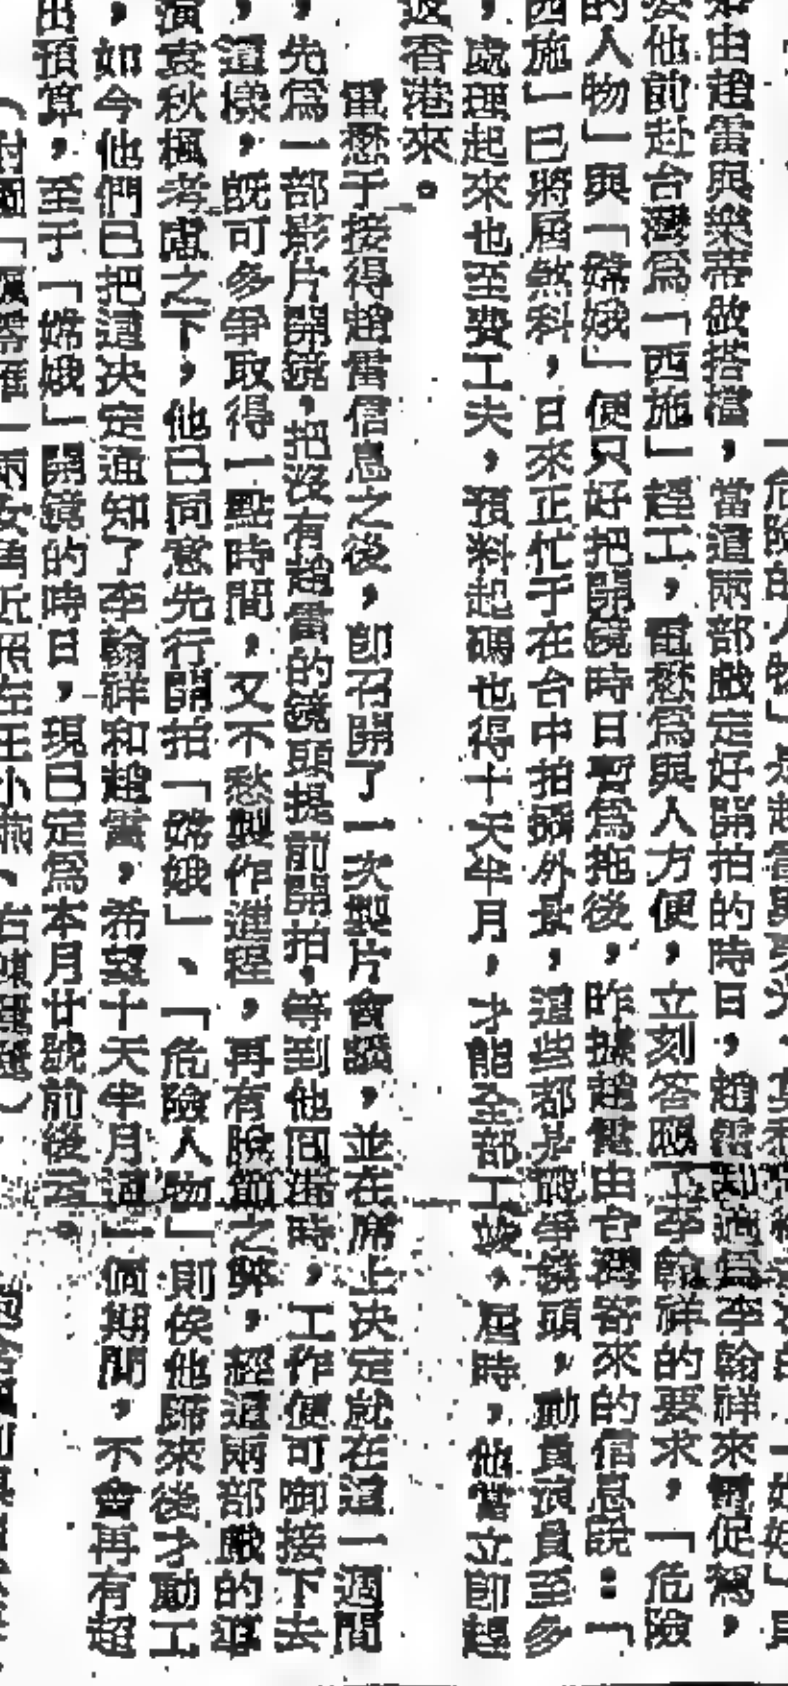 危險的人物」是趙雷與
來由趙雷與樂蒂做搭檔，當這兩部戲定好開拍的時日，趙雷知道爲李翰祥來電促駕，
要他前赴台灣爲「西施」趕工，電懋爲與人方便，立刻答應了李翰祥的要求，「危險
的人物」與「嫦娥」便只好把開鏡時日暫爲拖後，昨據趙雷由台灣寄來的信息說：「
西施」已將屆煞科，日來正忙于在台中拍攝外景，這些都是戰爭鏡頭，動員演員至多
，處理起來也至費工夫，預料起碼也得十天半月，才能全部工竣，屆時，他當立即趕
返香港來。
電懋于接得趙雷信息之後，即召開了一次製片會議，並在席上決定就在這一週間
，先爲一部影片開鏡，把沒有趙雷的鏡頭提前開拍，等到他回港時，工作便可啣接下去
，這樣，既可多爭取得一點時間，又不愁製作進程，再有脫節之弊，經這兩部戲的導
演袁秋楓考慮之下，他已同意先行開拍「嫦娥」、「危險人物」則俟他歸來後才動工
，如今他們已把這決定通知了李翰祥和趙雷，希望十天半月這一個期間，不會再有超
出預算，至于「嫦娥」開鏡的時日，現已定爲本月廿號前後云。